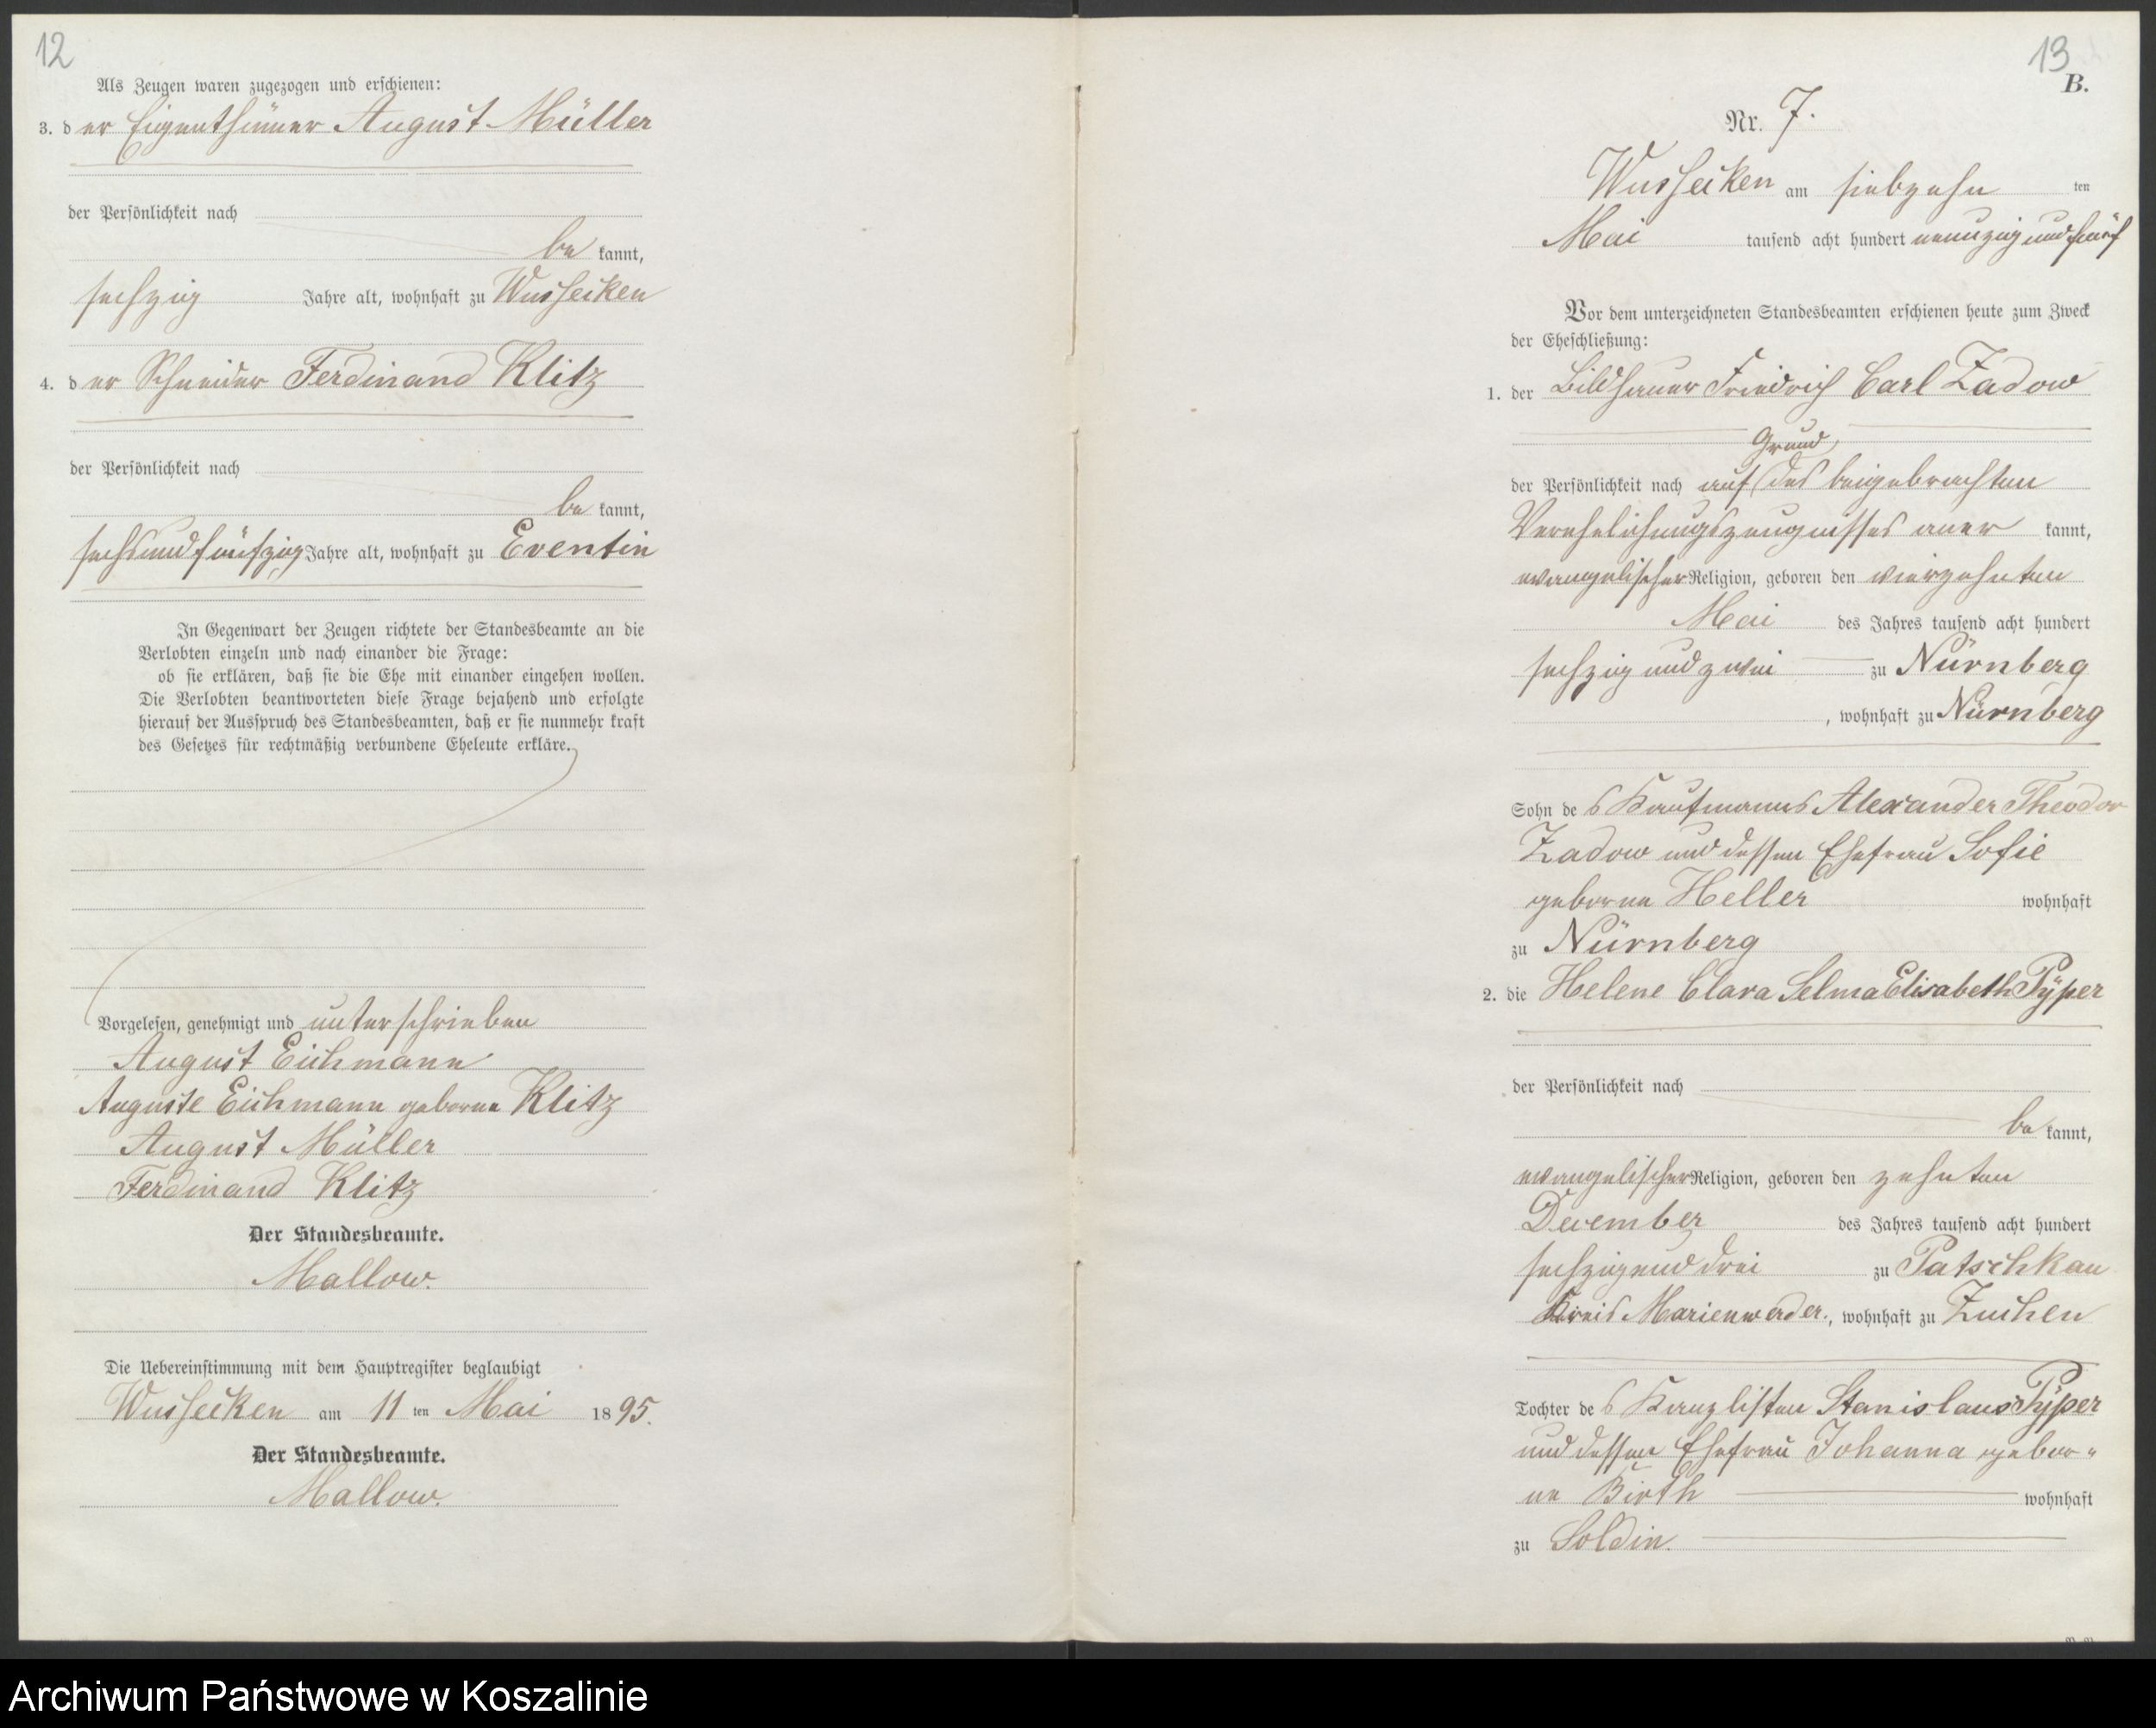 12
Als Zeugen waren zugezogen und erschienen:
3. der Eigenthümer August Müller
der Persönlichkeit nach
be kannt,
sechzig Jahre alt, wohnhaft zu Wusseiken
4. der Schneider Ferdinand Klitz
der Persönlichkeit nach
be kannt,
sechsundfünfzig Jahre alt, wohnhaft zu Eventin
In Gegenwart der Zeugen richtete der Standesbeamte an die
Verlobten einzeln und nach einander die Frage:
ob sie erklären, daß sie die Ehe mit einander eingehen wollen.
Die Verlobten beantworteten diese Frage bejahend und erfolgte
hierauf der Ausspruch des Standesbeamten, daß er sie nunmehr kraft
des Gesetzes für rechtmäßig verbundene Eheleute erkläre.
Vorgelesen, genehmigt und unterschrieben
August Eichmann
Auguste Eichmann geborne Klitz
August Müller
Ferdinand Klitz
Der Standesbeamte.
Mallow.
Die Uebereinstimmung mit dem Hauptregister beglaubigt
Wusseiken am 11 ten Mai 1895.
Der Standesbeamte.
Mallow.
13
B.
Nr. 7.
Wusseiken am siebzehn ten
Mai tausend acht hundert neunzig und fünf
Vor dem unterzeichneten Standesbeamten erschienen heute zum Zweck
der Eheschließung:
1. der Bildhauer Friedrich Carl Zadow
Grund
der Persönlichkeit nach auf des beigebrachten
Verehelichungszeugnisses aner kannt,
evangelischer Religion, geboren den vierzehnten
Mai des Jahres tausend acht hundert
sechzig und zwei zu Nürnberg
, wohnhaft zu Nürnberg
Sohn des Kaufmanns Alexander Theodor
Zadow und dessen Ehefrau Sofie
geborne Heller wohnhaft
zu Nürnberg
2. die Helene Clara Selma Elisabeth Pÿper
der Persönlichkeit nach
be kannt,
evangelischer Religion, geboren den zehnten
December des Jahres tausend acht hundert
sechzig und drei zu Patschkau
Kreis Marienwerder., wohnhaft zu Zuchen
Tochter des Kanzlisten Stanislaus Pÿper
und dessen Ehefrau Johanna gebor-
ne Birth wohnhaft
zu Soldin.
Archiwum Państwowe w Koszalinie